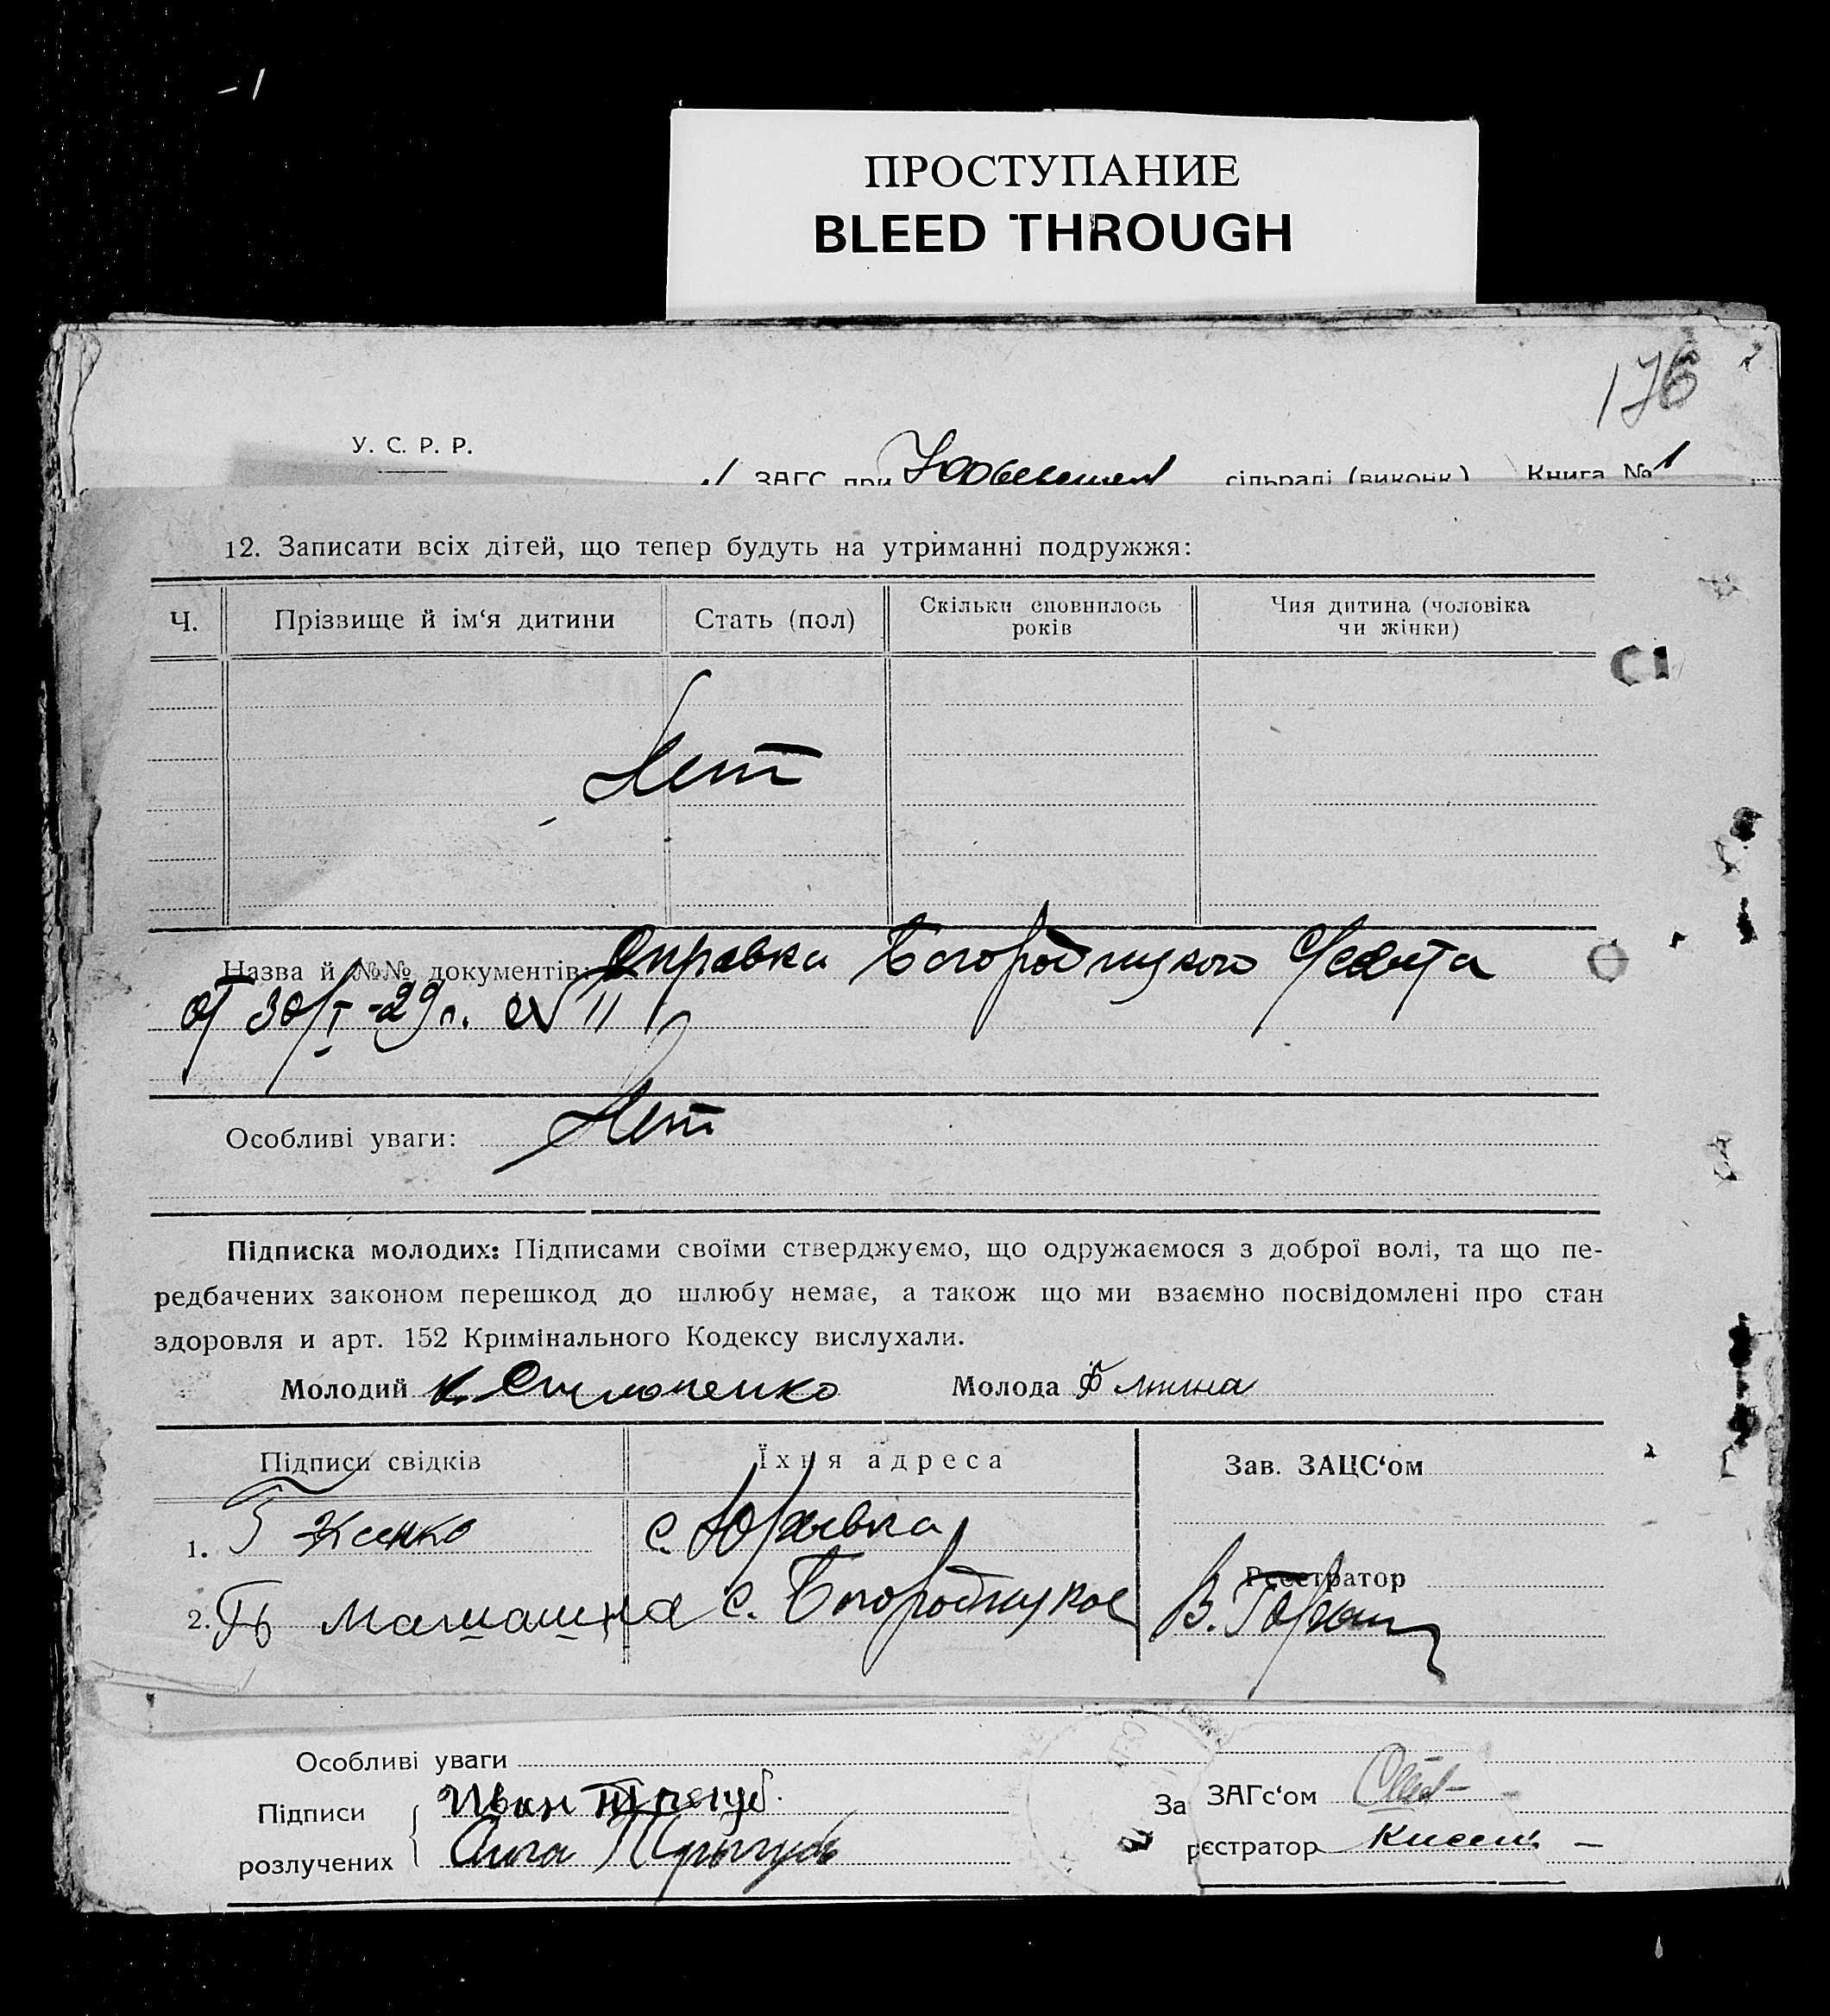 -1
ПРОСТУПАНИЕ
BLEED THROUGH
176
У. С. Р. Р.
ЗАГС при сільраді (виконк.) Книга № 1
12. Записати всіх дітей, що тепер будуть на утриманні подружжя:
Ч.
Прізвище й ім‘я дитини
Стать (пол)
Скільки сповнилось
років
Чия дитина (чоловіка
чи жінки)
Нет
Назва й №№ документів: Справка Богородицкого С/совета
от 30/I-29 г. № 11
Особливі уваги: Нет
Підписка молодих: Підписами своїми стверджуємо, що одружаємося з доброї волі, та що пе-
редбачених законом перешкод до шлюбу немає, а також що ми взаємно посвідомлені про стан
здоровля и арт. 152 Кримінального Кодексу вислухали.
Молодий Молода
Підписи свідків
Їхня адреса
Зав. ЗАЦС‘ом
1. с. Юрьевка
Реєстратор
2. с. Богородицкое
Особливі уваги
Підписи Иван
розлучених
За ЗАГс‘ом
рєстратор